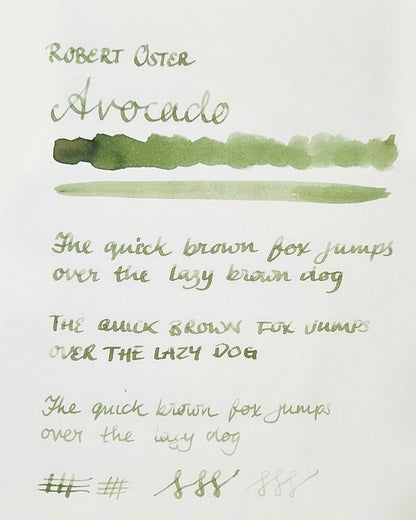 ROBERT OSTER
Avocado
The quick brown fox jumps
over the lazy brown dog
THE QUICK BROWN FOX JUMPS
OVER THE LAZY DOG
The quick brown fox jumps
over the lazy dog